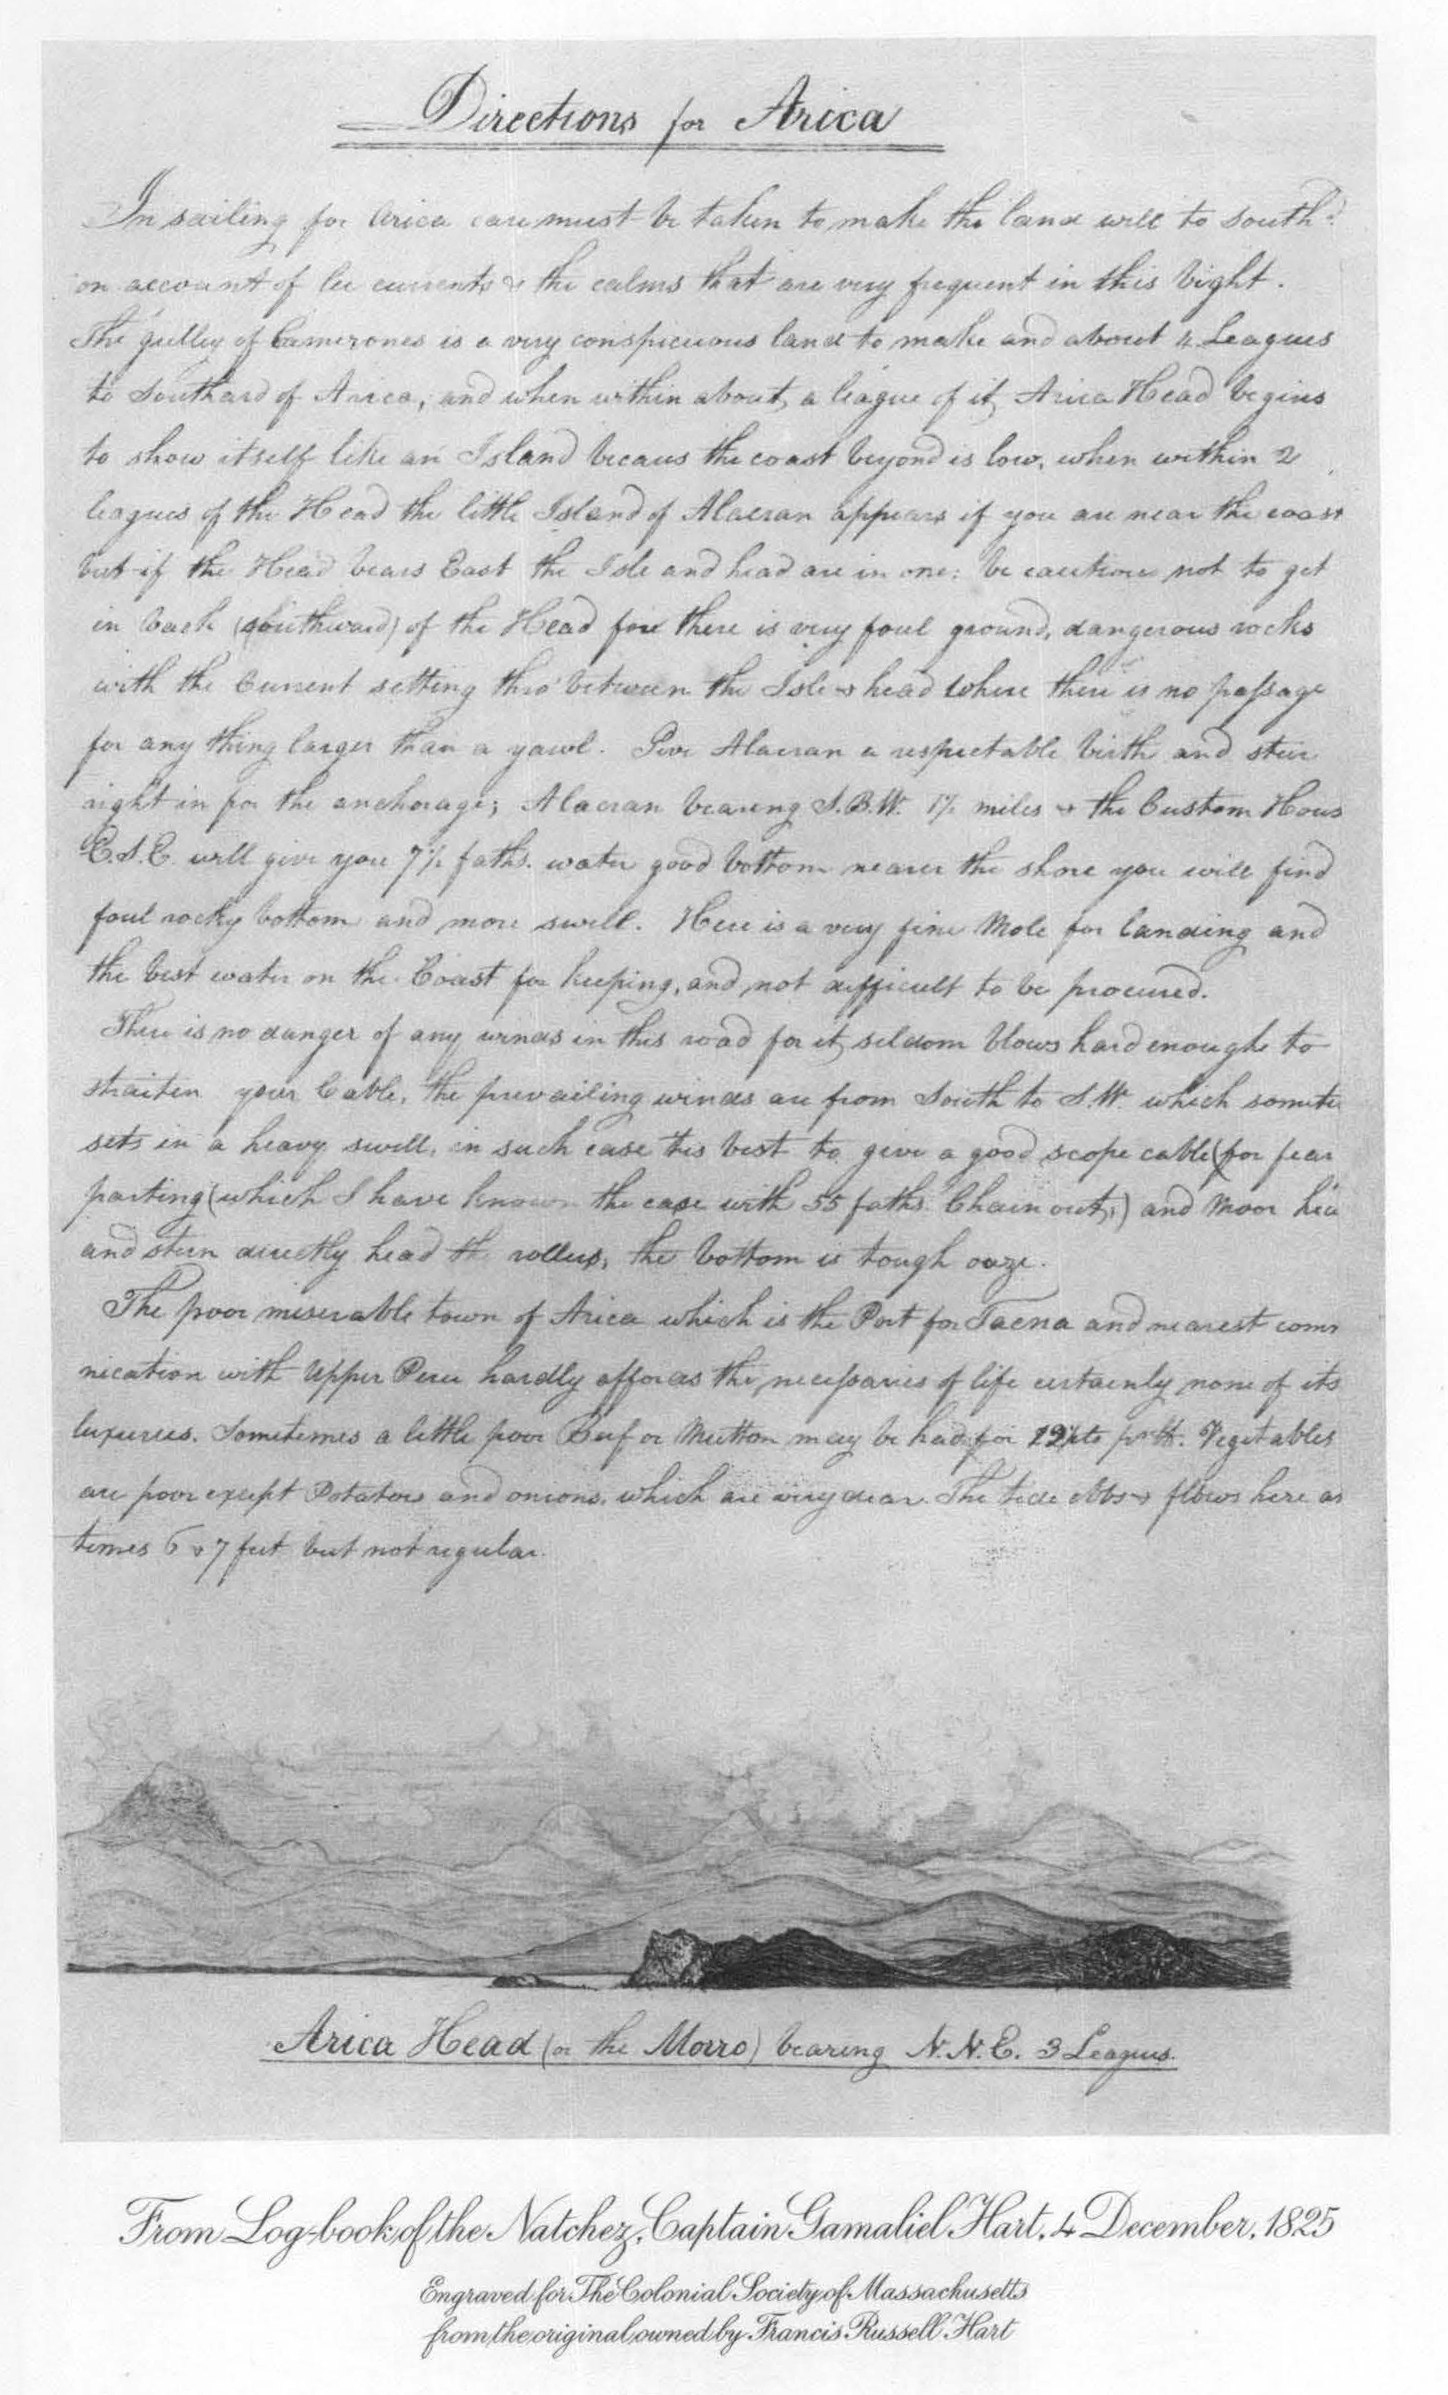 Directions for Arica
In sailing for Arica care must be taken to make the land well to south.d
on account of lee currents & the calms that are very frequent in this bight.
The gulley of Camerones is a very conspicuous land to make and about 4 Leagues
to Southard of Arica, and when within about a league of it, Arica Head begins
to show itself like an Island becaus the coast beyond is low, when within 2
leagues of the Head the little Island of Alacran appears if you are near the coast
but if the Head bears East the Isle and head are in one: be cautious not to get
in back (southward) of the Head for there is very foul ground, dangerous rocks
with the Current setting thro' between the Isle & head where there is no passage
for any thing larger than a yawl. Give Alacran a respectable birth and steer
right in for the anchorage; Alacran bearing S.B.W. 1½ miles & the Custom Hous
E.S.E. will give you 7½ faths. water good bottom nearer the shore you will find
foul rocky bottom and more swell. Here is a very fine Mole for landing and
the best water on the Coast for keeping, and not difficult to be procured.
There is no danger of any winds in this road for it seldom blows hard enough to
straiten your Cable, the prevailing winds are from South to S.W. which somite
sets in a heavy swell, in such case tis best to give a good scope cable (for fear
parting (which I have known the case with 55 faths. Chain out,) and Moor hea
and stern directly head th rollers, the bottom is tough ooze.
The poor miserable town of Arica which is the Port for Tacna and nearest com
nication with Upper Peru hardly affords the necessaries of life certainly none of its
luxuries. Sometimes a little poor Beef or Mutton may be had for pr lb. Vegetables
are poor except Potatoes and onions, which are very dear. The tide ebbs & flows here as
times 6 & 7 feet but not regular.
Arica Head (or the Morro) bearing N.N.E. 3 Leagues.
From Log-book of the Natchez, Captain Gamaliel Hart, 4 December, 1825
Engraved for The Colonial Society of Massachusetts
from the original owned by Francis Russell Hart